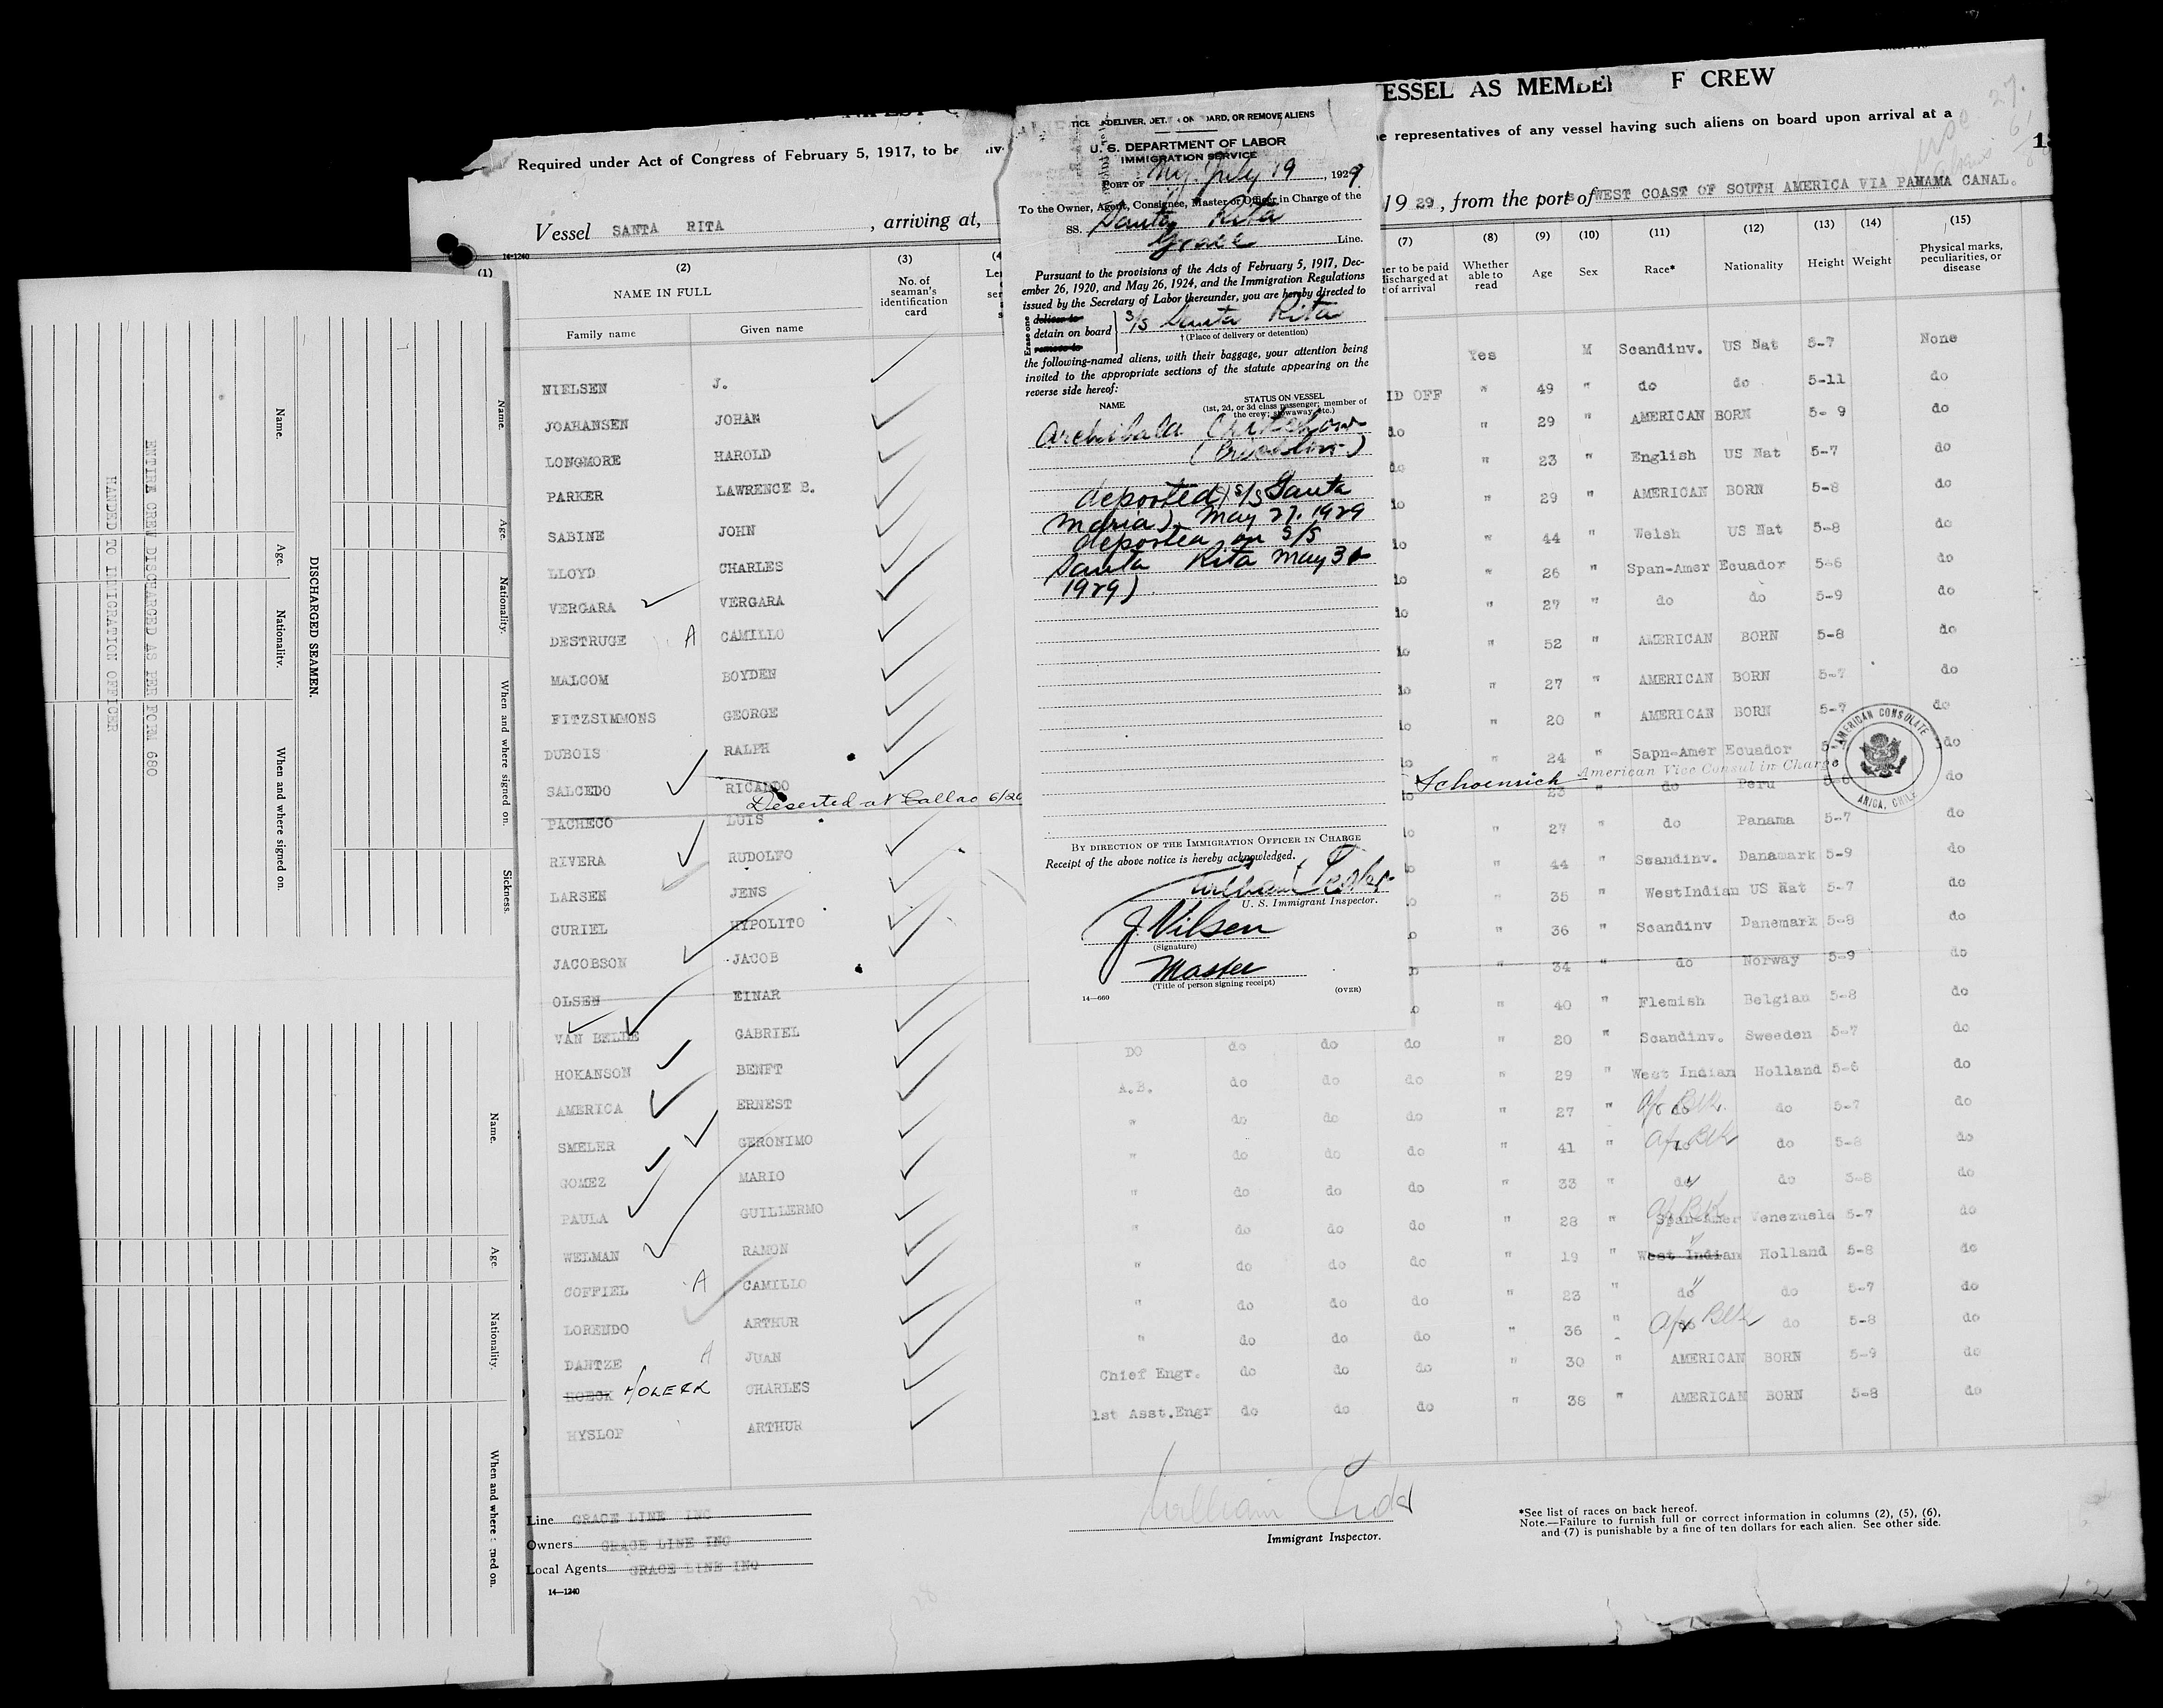 ESSEL AS MEMBE F CREW
Required under Act of Congress of February 5, 1917, to be
e representatives of any vessel having such aliens on board upon arrival at a
Vessel SANTA RITA , arriving at,
19 29, from the port s of WEST COAST OF SOUTH AMERICA VIA PANAMA CANAL.
14-1240
(1) (2) (3)
NAME IN FULL
Family name Given name
No. of seaman's identification card
(7) (8) (9) (10) (11) (12) (13) (14) (15)
Whether able to read Age Sex Race* Nationality Height Weight Physical marks, peculiarities, or disease
NIELSEN J.
JOAHANSEN JOHAN
LONGMORE HAROLD
PARKER LAWRENCE B.
SABINE JOHN
LLOYD CHARLES
VERGARA VERGARA
DESTRUGE A CAMILLO
MALCOM BOYDEN
FITZSIMMONS GEORGE
DUBOIS RALPH
SALCEDO RICARDO
Deserted at Callao 6/20
PACHECO LUIS
RIVERA RUDOLFO
LARSEN JENS
CURIEL HYPOLITO
JACOBSON JACOB
OLSEN EINAR
VAN BELLE GABRIEL
HOKANSON BENFT
AMERICA ERNEST
SMELER GERONIMO
GOMEZ MARIO
PAULA GUILLERMO
WELMAN RAMON
COFFIEL A CAMILLO
LORENDO ARTHUR
DANTZE A JUAN
HOECK HOLECK CHARLES
HYSLOP ARTHUR
Yes M Scandinv. US Nat 5-7 None
ID OFF " 49 " do do 5-11 do
do " 29 " AMERICAN BORN 5-9 do
do " 23 " English US Nat 5-7 do
do " 29 " AMERICAN BORN 5-8 do
do " 44 " Welsh US Nat 5-8 do
do " 26 " Span-Amer Ecuador 5-6 do
do " 27 " do do 5-9 do
do " 52 " AMERICAN BORN 5-8 do
do " 27 " AMERICAN BORN 5-7 do
do " 20 " AMERICAN BORN 5-7 do
do " 24 " Sapn-Amer Ecuador 5 do
Schoenrich American Vice Consul in Charge
AMERICAN CONSULATE
ARICA, CHILE
do 23 " do Peru do
do " 27 do Panama 5-7 do
do " 44 " Scandinv. Danamark 5-9 do
do " 35 " WestIndian US Nat 5-7 do
do " 36 " Scandinv Danemark 5-8 do
34 " do Norway 5-9 do
" 40 " Flemish Belgian 5-8 do
DO do do do " 20 " Scandinv. Sweeden 5-7 do
A.B. do do do " 29 " West Indian Holland 5-6 do
" do do do " 27 " do Afr Blk. do 5-7 do
" do do do " 41 " do Afr Blk do 5-8 do
" do do do " 33 " do do 5-8 do
" do do do " 28 " Span-Amer Afr Blk Venezuela 5-7 do
" do do do " 19 " West Indian Holland 5-8 do
" do do do " 23 " do do 5-7 do
" do do do " 36 " do Afr Blk do 5-8 do
Chief Engr. do do do " 30 " AMERICAN BORN 5-9 do
1st Asst.Engr do do do " 38 " AMERICAN BORN 5-8 do
Line GRACE LINE INC
Owners GRACE LINE INC
Local Agents GRACE LINE INC
14—1240
Immigrant Inspector.
*See list of races on back hereof.
Note.—Failure to furnish full or correct information in columns (2), (5), (6),
and (7) is punishable by a fine of ten dollars for each alien. See other side.
DELIVER, DET. ON BOARD, OR REMOVE ALIENS
U. S. DEPARTMENT OF LABOR
IMMIGRATION SERVICE
PORT OF NY. July 19, 1929
To the Owner, Agent, Consignee, Master or Officer in Charge of the
SS. Santa Rita
Grace Line.
Pursuant to the provisions of the Acts of February 5, 1917, Dec-
ember 26, 1920, and May 26, 1924, and the Immigration Regulations
issued by the Secretary of Labor thereunder, you are hereby directed to
Erase one
deliver to
detain on board
remove to
S/S Santa Rita
† (Place of delivery or detention)
the following-named aliens, with their baggage, your attention being
invited to the appropriate sections of the statute appearing on the
reverse side hereof:
NAME STATUS ON VESSEL
(1st, 2d, or 3d class passenger; member of
the crew; stowaway, etc.)
Archibald Critchlow
deported) s/s Santa
Maria) May 27, 1929
deported on S/S
Santa Rita May 30
1929)
BY DIRECTION OF THE IMMIGRATION OFFICER IN CHARGE
Receipt of the above notice is hereby acknowledged.
U. S. Immigrant Inspector.
J Nilsen
(Signature)
Master
(Title of person signing receipt)
14—660
(OVER)
DISCHARGED SEAMEN.
Name. Age. Nationality. When and where signed on.
ENTIRE CREW DISCHARGED AS PER FORM 680
HANDED TO IMMIGRATION OFFICER
Name. Age. Nationality. When and where signed on. Sickness.
Name. Age. Nationality. When and where signed on.